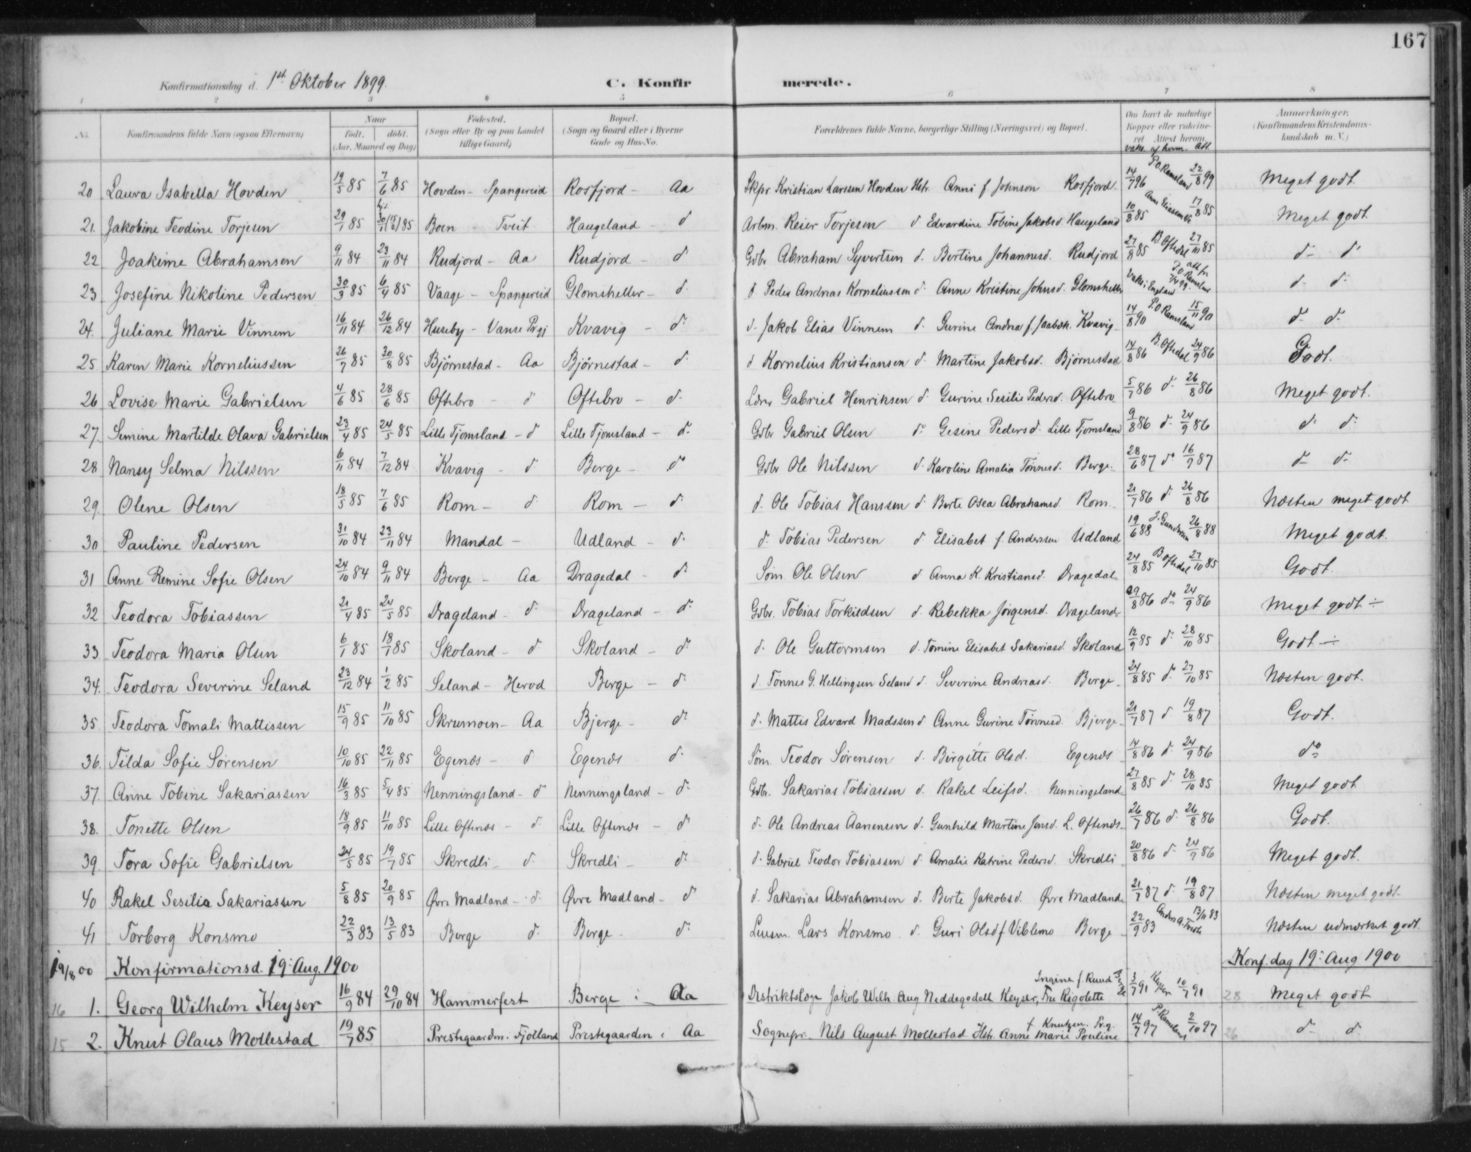 167
Konfirmationsdag d. 1st Oktober 1899. C. Konfirmerede.
1 2 3 4 5 6 7 8
No. Konfirmandens fulde Navn (ogsaa Efternavn) Naar født. døbt. (Aar, Maaned og Dag) Fødested. (Sogn eller By og paa Landet tillige Gaard) Bopæl. (Sogn og Gaard eller i Byerne Gade og Hus-No. Forældrenes fulde Navne, borgerlige Stilling (Næringsvei) og Bopæl. Om havt de naturlige Kopper eller vaccineret. Attest herom. Anmærkninger. (Konfirmandens Kristendomskundskab m. V.)
20 Laura Isabella Hovden 19/5 85 7/6 85 Hovden - Spangereid Rosfjord - Aa Skpr Kristian Larssen Hovden Hstr. Anni f Johnson Rosfjord 14/7 96 P.O. Ramsland 22/8 99 Meget godt
21 Jakobine Teodine Torjesen 29/7 85 Boen - Tveit Haugeland - d Arbm. Reier Torjesen d Edvardine Tobine Jakobsd Haugeland 10/8 85 17/8 85 Meget godt
22 Joakime Abrahamsen 9/11 84 23/11 84 Rudjord - Aa Rudjord - d Gdbr Abraham Syvertsen d. Bertine Johannesd. Rudjord 27/8 85 B Oftedal 27/11 85 d - d
23 Josefine Nikoline Pedersen 30/3 85 6/4 85 Vaage - Spangereid Glomsheller - d. d. Peder Andreas Korneliussen d. Anne Kristine Johnsd. Glomsheller Vakc. i England d. d.
24. Juliane Marie Vinnem 16/11 84 26/12 84 Huseby - Vanse Prgj Kvavig - d. d. Jakob Elias Vinnem d. Gurine Andrea f Jaabæk. Kvavig 14/8 90 P.O Ramsland 15/11 90 d. d.
25 Karen Marie Korneliussen 26/7 85 30/8 85 Bjørnestad - Aa Bjørnestad - d. d Kornelius Kristiansen d. Martine Jakobsd. Bjørnestad 14/8 86 B. Oftedal 24/9 86 Godt.
26 Lovise Marie Gabrielsen 4/6 85 28/6 85 Oftebro - d Oftebro - d. Lærer Gabriel Henriksen d Gurine Sesilie Pedersd. Oftebro 5/7 86 d. 26/8 86 Meget godt.
27. Semine Martilde Olava Gabrielsen 23/4 85 24/5 85 Lille Tjomsland - d Lille Tjomsland - d. Gdbr Gabriel Olsen d. Gesine Pedersd. Lille Tjomsland 9/8 86 d. 24/9 86 d. d.
28 Nansy Selma Nilssen 6/11 84 7/12 84 Kvavig - d Berge - d. Gdbr Ole Nilssen d. Karoline Amalia Tønnesd. Berge. 28/6 87 d. 16/9 87 d - d.
29. Olene Olsen 18/5 85 7/6 85 Rom - d Rom - d. d. Ole Tobias Hanssen d. Berte Osea Abrahamsd Rom 21/7 86 d 26/8 86 Næsten meget godt
30 Pauline Pedersen 31/10 84 23/11 84 Mandal - Udland - d. d. Tobias Pedersen d Elisabet f Anderssen Udland 19/6 88 26/8 88 Meget godt.
31 Anne Remine Sofie Olsen 24/10 84 9/11 84 Berge - Aa Dragedal - d. Søm. Ole Olsen d Anna K. Kristiansd. Dragedal 24/8 85 B Oftedal 27/10 85 Godt.
32 Teodora Tobiassen 21/4 85 24/5 85 Drageland - d. Drageland - d. Gdbr. Tobias Torkildsen d. Rebekka Jørgensd. Drageland 29/8 86 d. 24/9 86 Meget godt ÷
33 Teodora Maria Olsen 6/1 85 18/1 85 Skoland - d Skoland - d. d. Ole Guttormsen d. Tomine Elisabet Sakariasd. Skoland 18/9 85 d. 28/10 85 Godt ÷
34. Teodora Severine Seland 23/12 84 1/2 85 Seland - Herod Berge - d. d Tønnes G. Hellingsen Seland d Severine Andreasd. Berge 24/8 85 d. 27/10 85 Næsten godt.
35 Teodora Tomali Mattissen 15/9 85 11/10 85 Skrumoen - Aa Bjerge - d. d. Mattis Edvard Madssen d Anne Gurine Tønnesd. Bjerge 21/7 87 d 19/8 87 Godt.
36. Tilda Sofie Sørensen 10/10 85 22/11 85 Egenes - d Egenes d. Søm. Teodor Sørensen d. Birgitte Olsd. Egenes 14/8 86 d 24/9 86 do
37. Anne Tobine Sakariassen 16/3 85 5/4 85 Nenningsland - d Nenningsland - d. Gdbr. Sakarias Tobiassen d. Rakel Leifsd. Nenningsland 27/8 85 d. 28/10 85 Meget godt
38. Tonette Olsen 18/9 85 11/10 85 Lille Oftenes - d Lille Oftenes - d. d. Ole Andreas Aanensen d. Gunhild Martine Jensd. L. Oftenes 26/7 86 d. 26/8 86 Godt.
39. Tora Sofie Gabrielsen 24/5 85 19/7 85 Skredli - d. Skredli - d. d. Gabriel Teodor Tobiassen d. Amalie Katrine Pedersd. Skredli 20/8 86 d. 24/9 86 Meget godt.
40 Rakel Sesilia Sakariassen 5/8 85 20/9 85 Øvre Madland - d. Øvre Madland - d d. Sakarias Abrahamsen d. Berte Jakobsd. Øvre Madland 21/7 87 d. 19/8 87 Næsten meget godt.
41 Torborg Konsmo 22/3 83 13/5 83 Berge d. Berge - d. Lensm. Lars Konsmo d. Guri Olsd f Viblemo Berge 22/9 83 Næsten udmerket godt
19/8 00 Konfirmationsd. 19: Aug. 1900 Konf. dag 19: Aug 1900
16 1. Georg Wilhelm Keyser 16/9 84 29/10 84 Hammerfest Berge i Aa Distriktslæge Jakob Wilh. Aug Neddegodett Keyser, Fru Rigolette Ingine f Ruud 3/7 91 Keyser 10/7 91 28 Meget godt
15 2. Knut Olaus Mollestad 19/7 85 Præstegaarden. Fjotland Præstegaarden i Aa Sognepr. Nils August Mollestad Hstr. Anne Marie Pouline f. Knutzen 14/7 97 P. Ramsland 2/10 97 26 d. d.